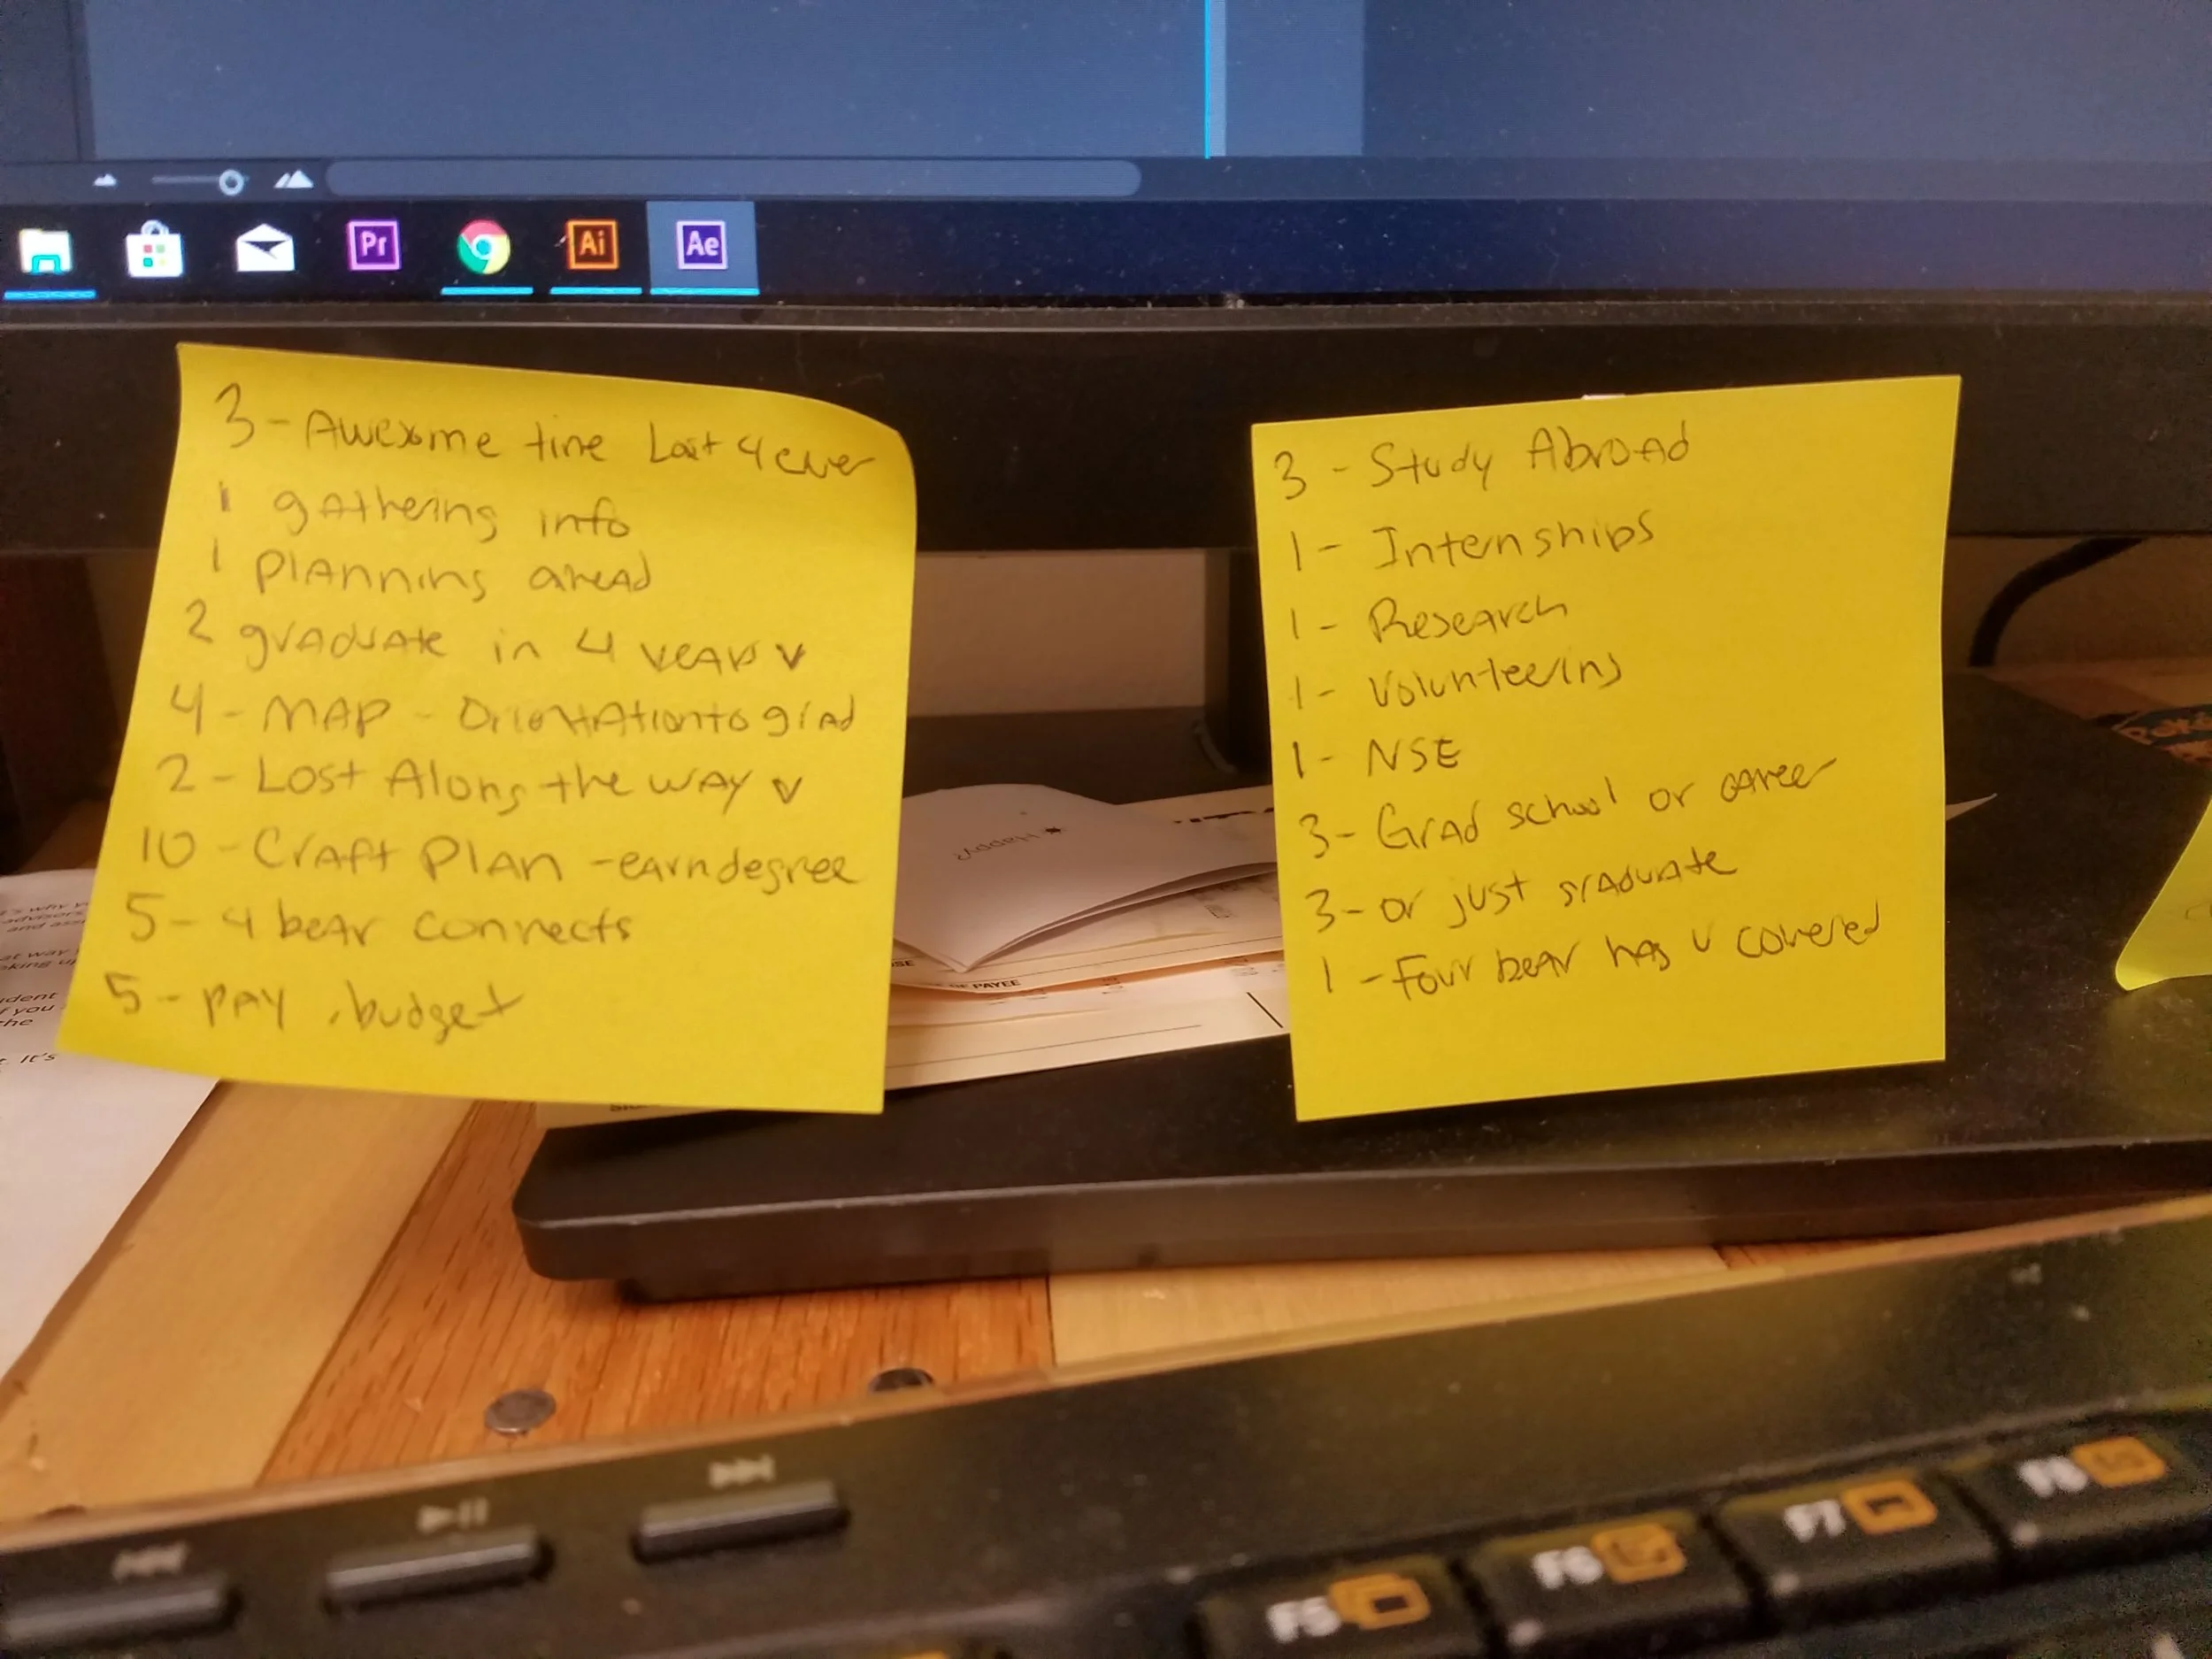 Pr Ai Ae
3 - Awesome time Last 4 ever
1 gathering info
1 planning ahead
2 graduate in 4 years v
4 - MAP - Orientation to grad
2 - Lost Along the way v
10 - Craft Plan - earn degree
5 - 4 bear connects
5 - pay . budget
3 - Study Abroad
1 - Internships
1 - Research
1 - Volunteering
1 - NSE
3 - Grad school or career
3 - or just graduate
1 - Four bear has u covered
Happy
OF PAYEE
F5 F6 F7 F8